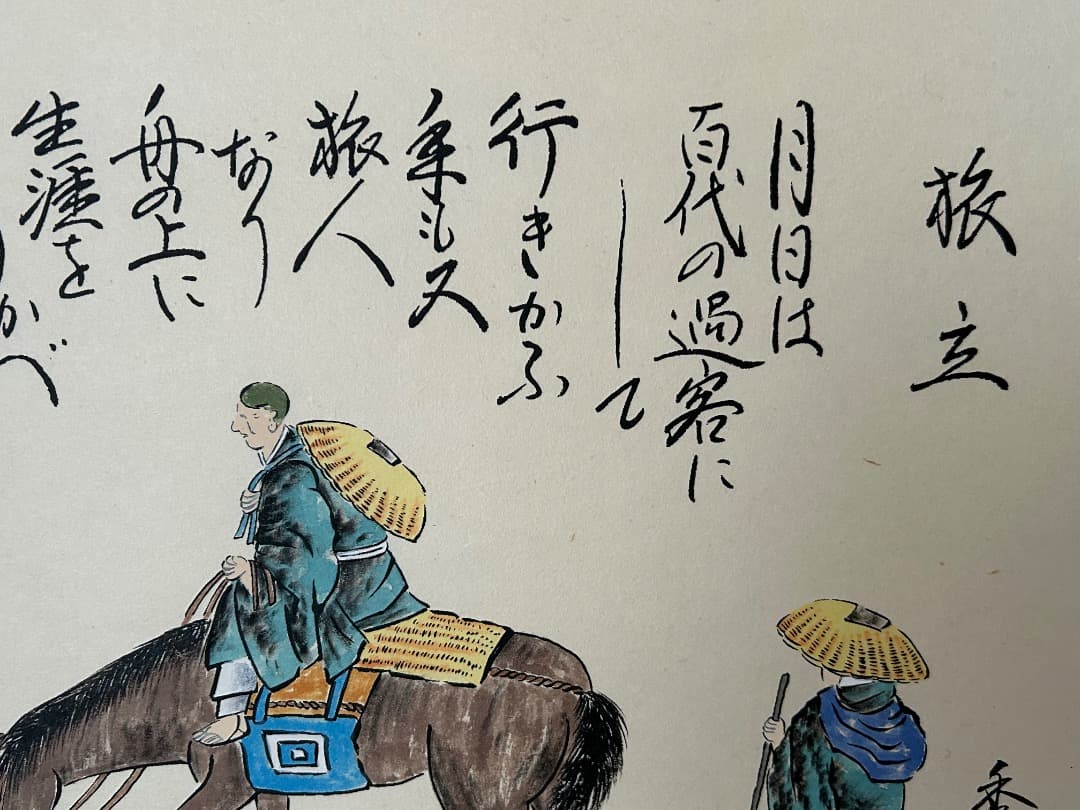 旅立
月日は
百代の過客に
して
行きかふ
年も又
旅人
なり
舟の上に
生涯を
うかべ
香